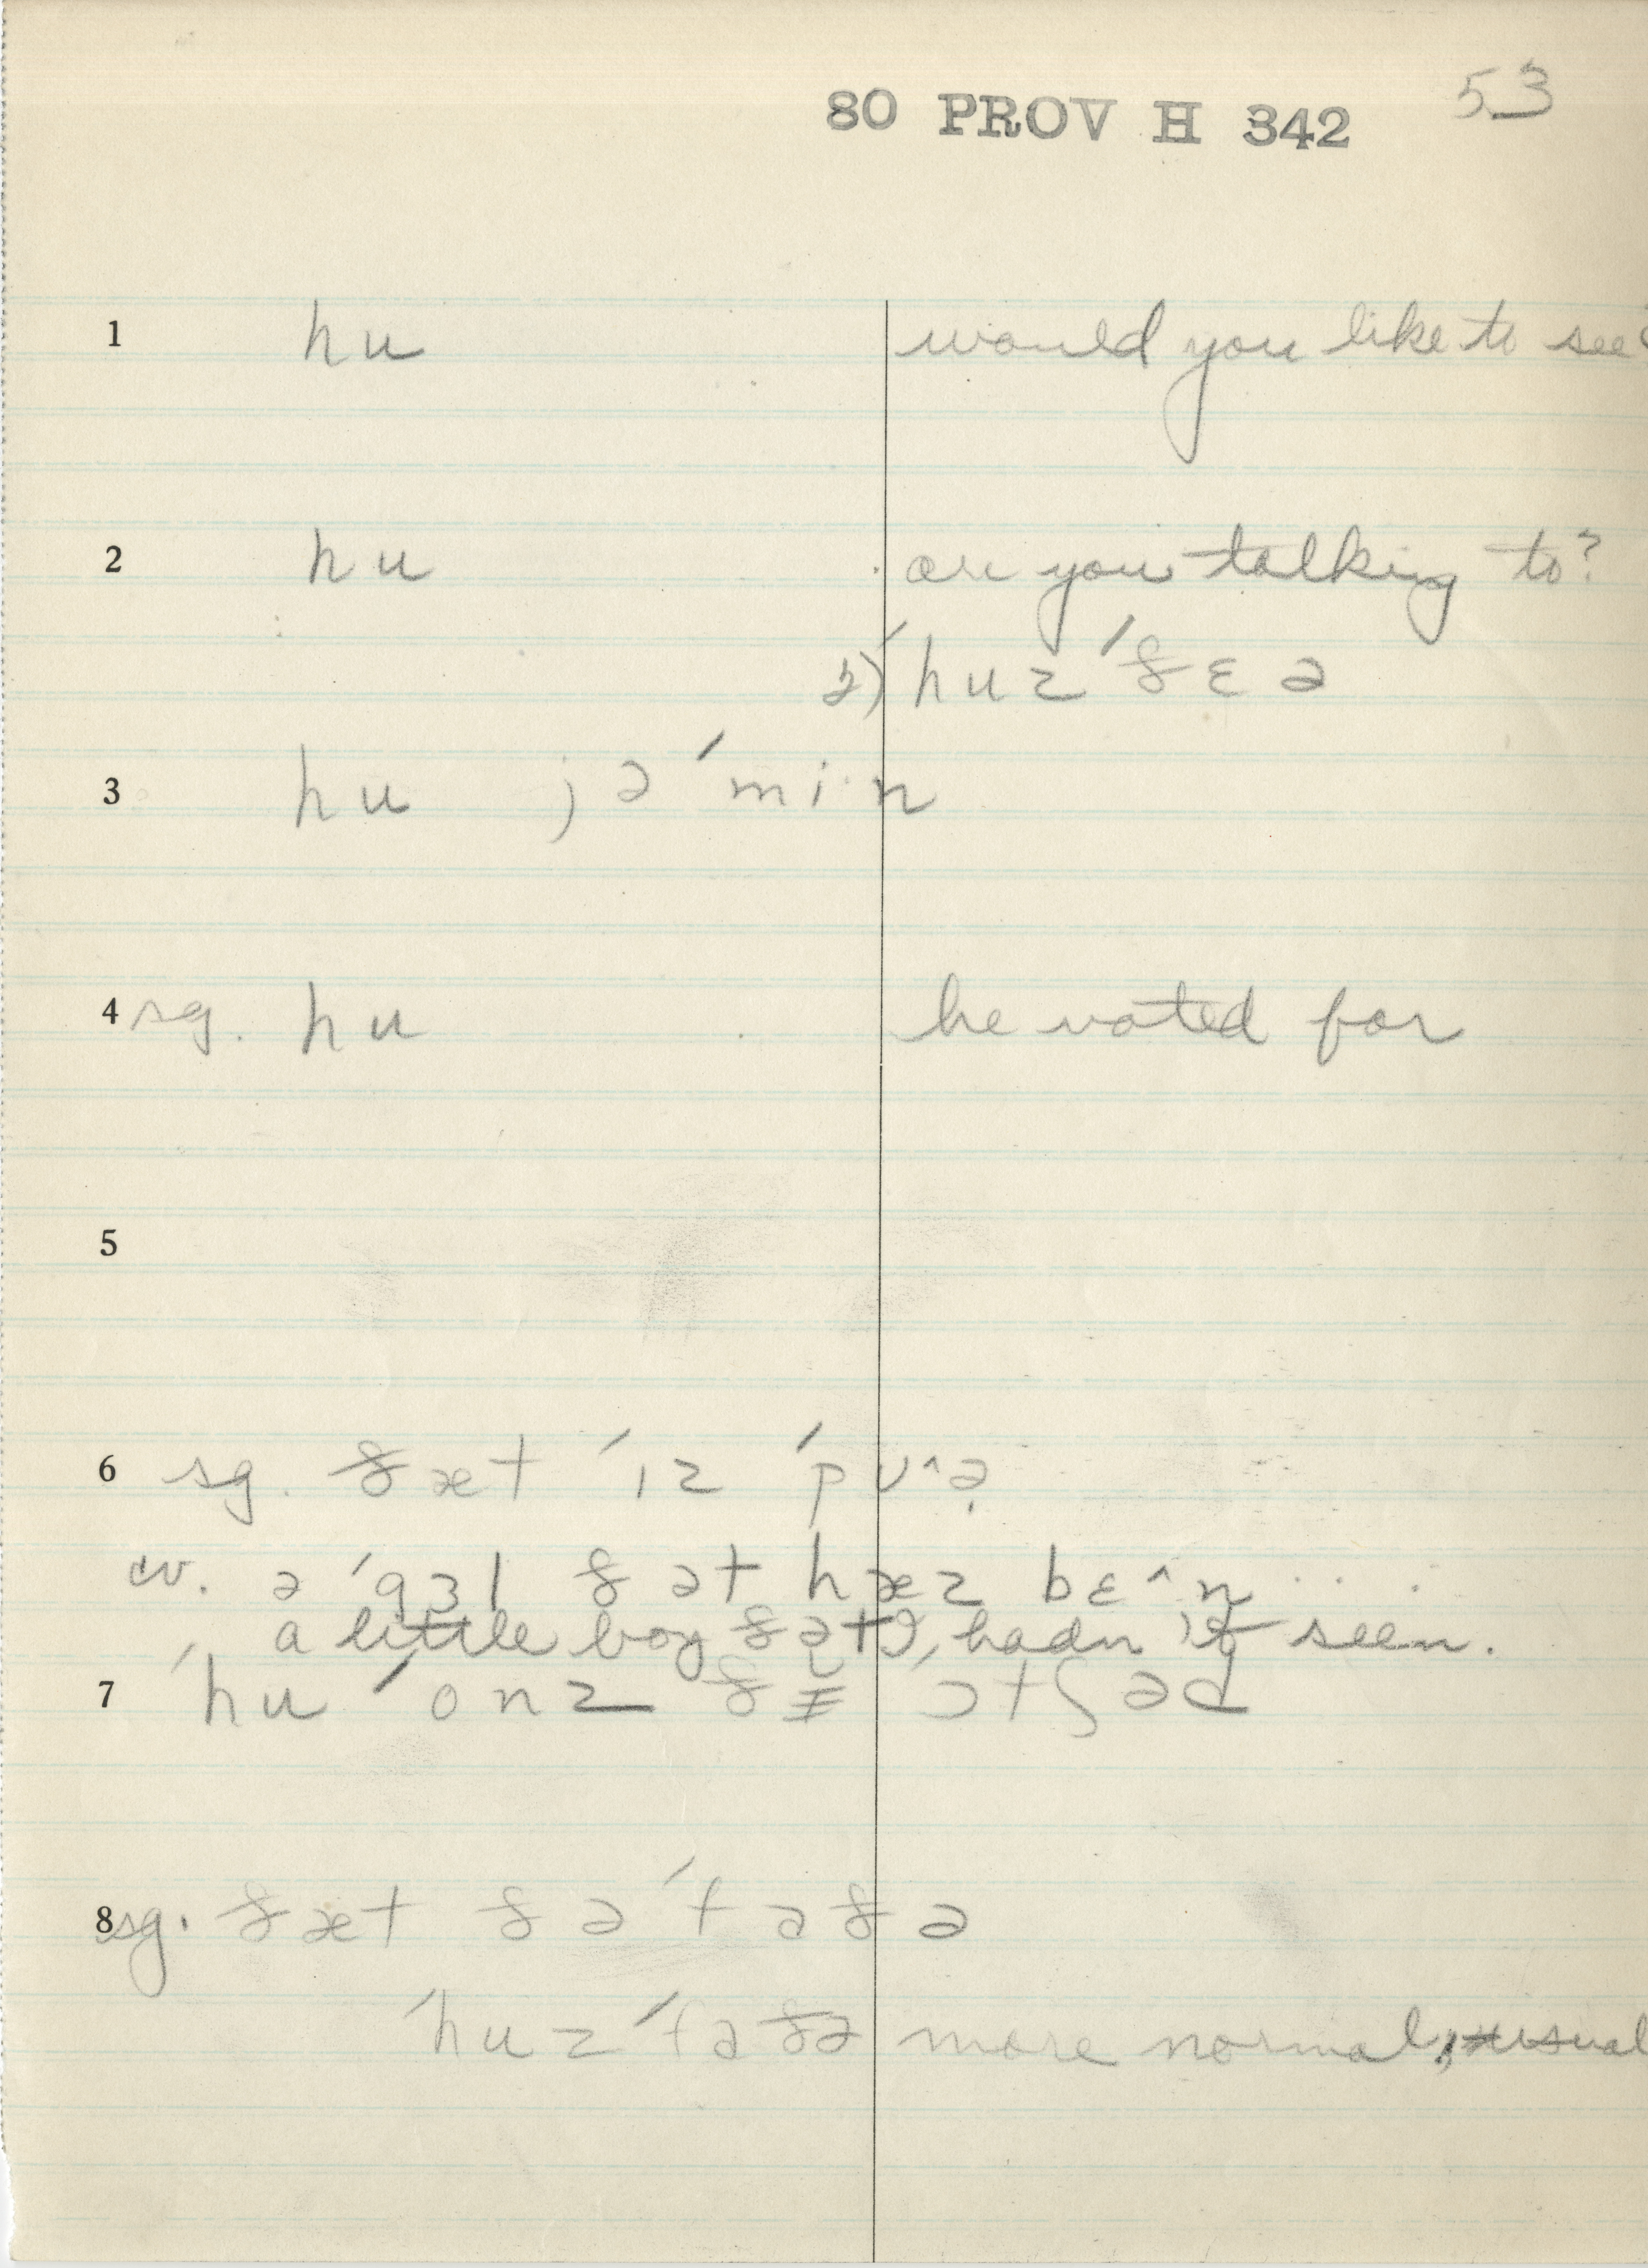 80 PROV H 342 53
1 hu would you like to see?
2 hu are you talking to?
2) ˈhuz ˈðɛə
3 hu jəˈmi·n
4 sg. hu he voted for
5
6 sg. ðæt ˈɪz ˈpʊ^ə
cv. ə ˈgɜl ðət hæz bɛ^n . . .
a little boy ðət hadn't seen.
7 ˈhu ˈonz ði ˈɔtʃəd
8 sg. ðæt ðəˈfaðə
ˈhuz ˈfaðə more normal, usual